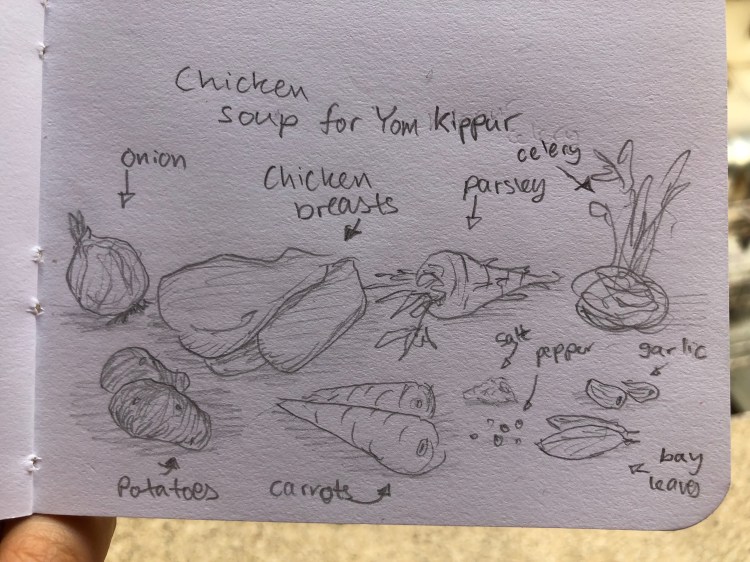 Chicken
soup for Yom Kippur
onion
Chicken
breasts
parsley
celery
salt
pepper
garlic
potatoes
carrots
bay
leaves